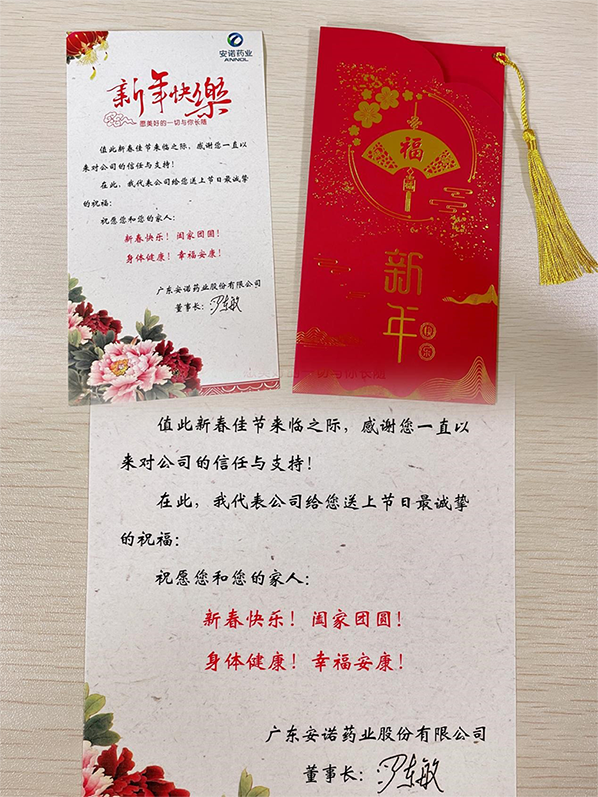 安诺药业
ANNOL
新年快樂
愿美好的一切与你长随
值此新春佳节来临之际，感谢您一直以
来对公司的信任与支持！
在此，我代表公司给您送上节日最诚挚
的祝福：
祝愿您和您的家人：
新春快乐！阖家团圆！
身体健康！幸福安康！
广东安诺药业股份有限公司
董事长：
福
新年
快乐
值此新春佳节来临之际，感谢您一直以
来对公司的信任与支持！
在此，我代表公司给您送上节日最诚挚
的祝福：
祝愿您和您的家人：
新春快乐！阖家团圆！
身体健康！幸福安康！
广东安诺药业股份有限公司
董事长：